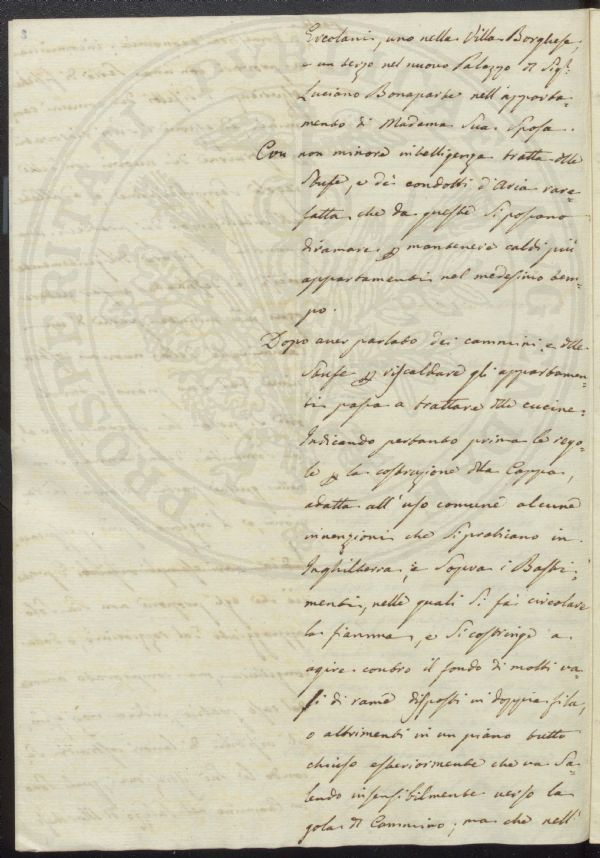 Ercolani, uno nella Villa Borghese,
e un terzo nel nuovo Palazzo di Sig.r
Luciano Bonaparte nell'apparta-
mento di Madama Sua Sposa.
Con non minore intelligenza tratta delle
Stufe, e dei condotti d'Aria rare-
fatta che da queste si possono
diramare per mantenere caldi più
appartamenti nel medesimo tem-
po.
Dopo aver parlato dei cammini e delle
Stufe per riscaldare gli appartamen-
ti passa a trattare delle cucine.
Indicando pertanto prima le rego-
le per la costruzione della Cappa,
adatta all'uso comune alcune
invenzioni che si praticano in
Inghilterra, e Sopra i Basti-
menti, nelle quali si fa circolare
la fiamma, e si costringe a
agire contro il fondo di molti va-
si di rame disposti in doppia fila,
o altrimenti in un piano tutto
chiuso esteriormente che va Sa-
lendo insensibilmente verso la
gola del Cammino; ma che nell'
PROSPERITATI PUBLICAE